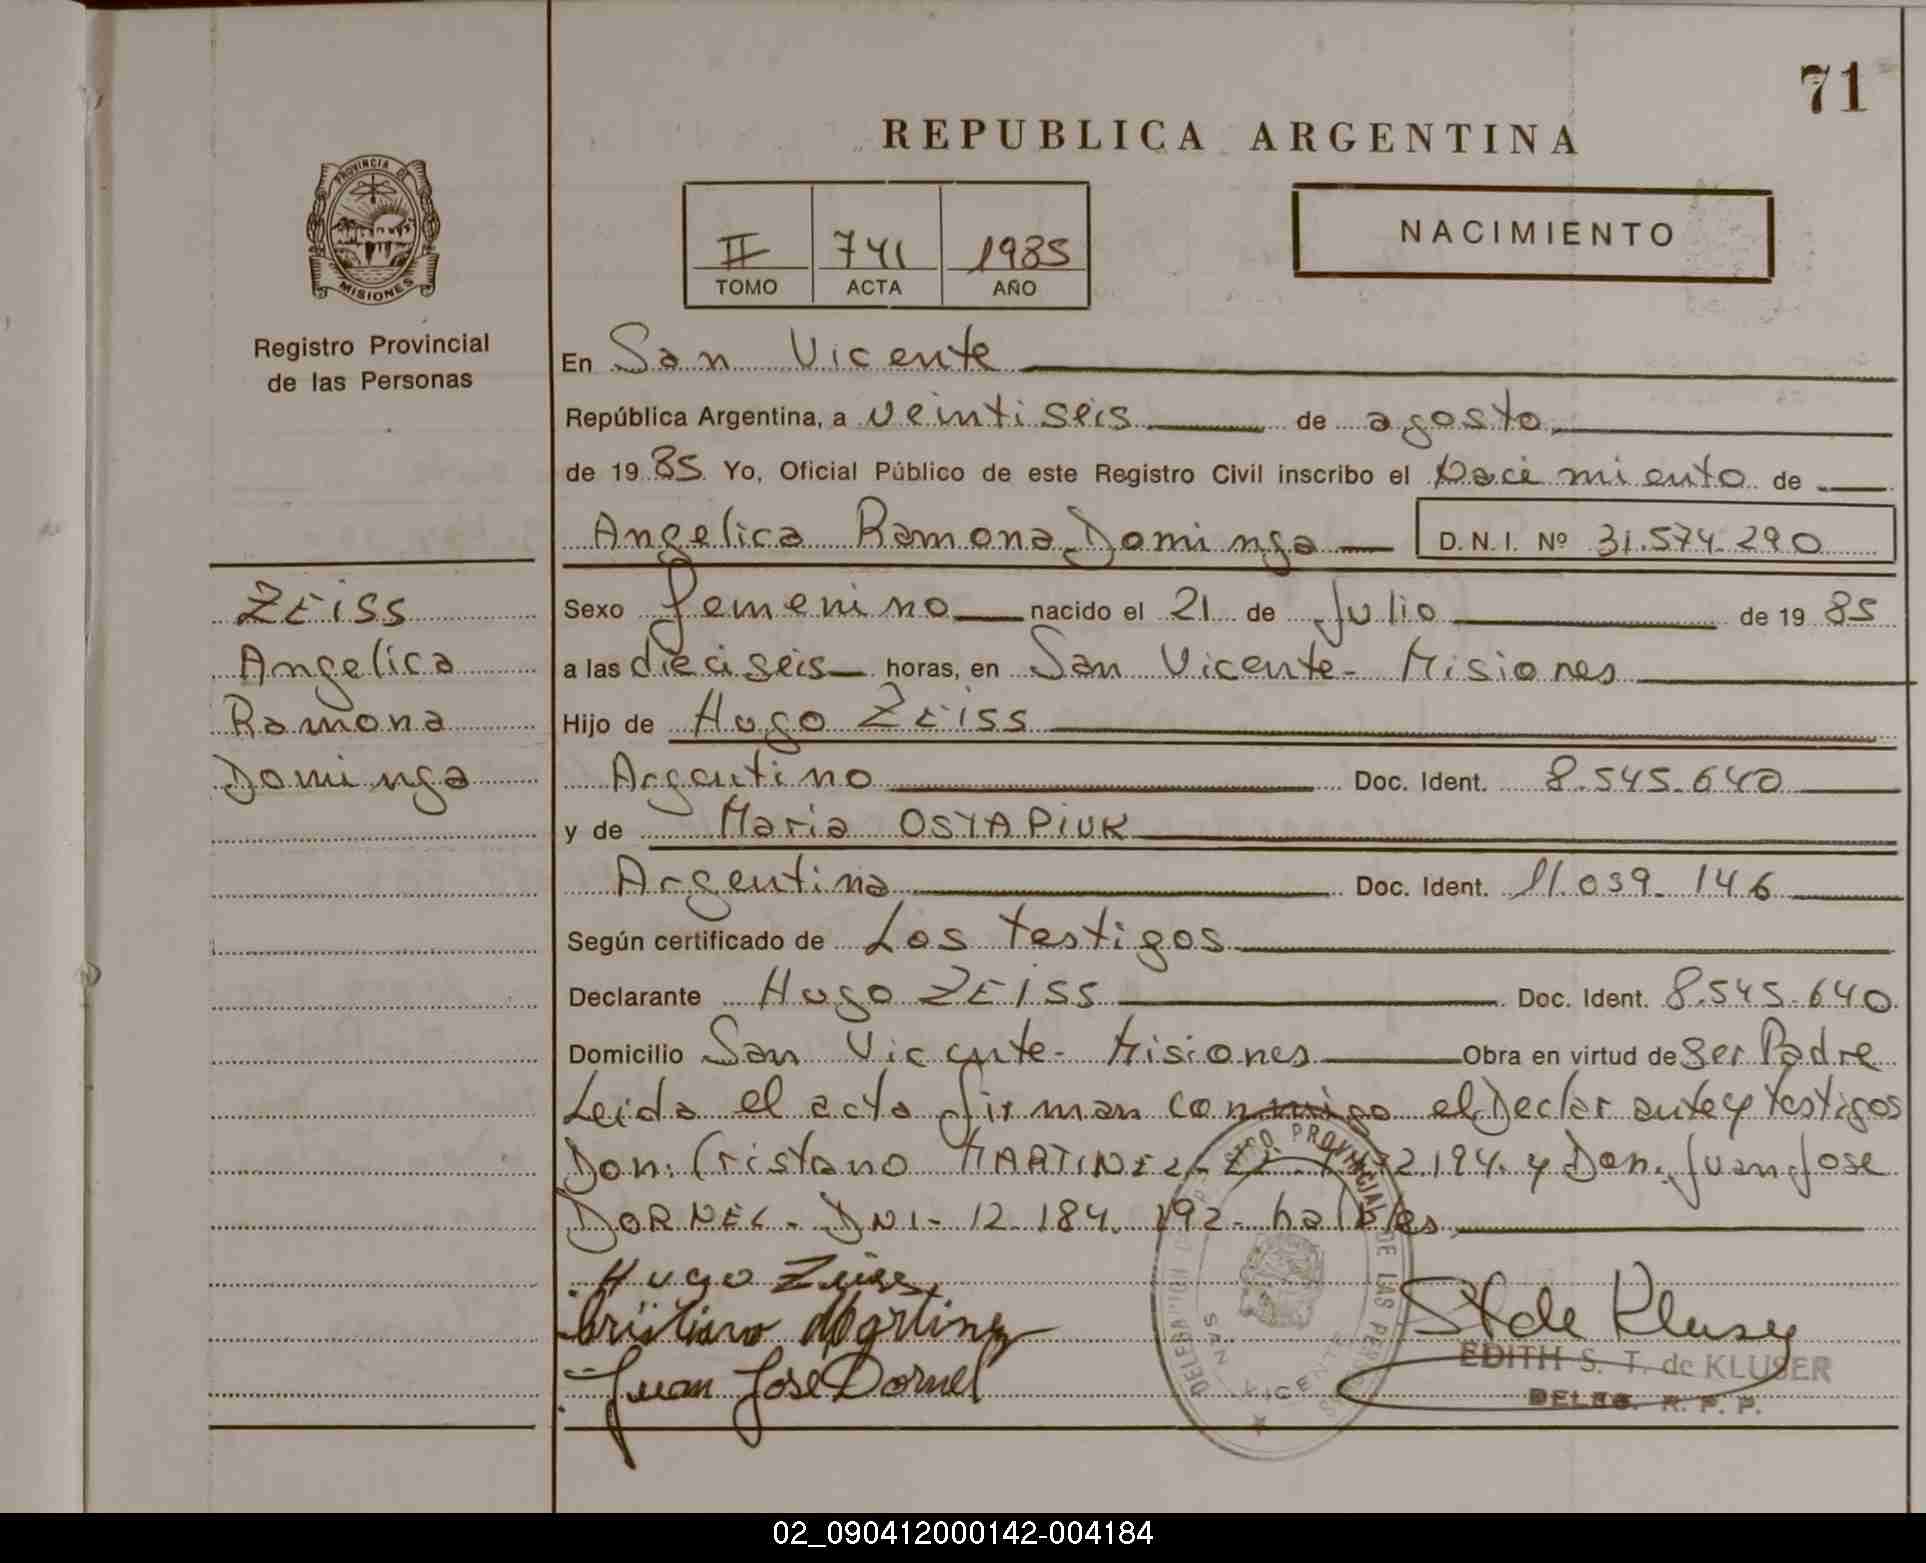 71
REPUBLICA ARGENTINA
PROVINCIA DE
MISIONES
Registro Provincial
de las Personas
II 741 1985
TOMO ACTA AÑO
NACIMIENTO
En San Vicente
República Argentina, a veintiseis de agosto
de 19 85 Yo, Oficial Público de este Registro Civil inscribo el Nacimiento de
Angelica Ramona Dominga D.N.I. Nº 31.574.290
ZEISS
Angelica
Ramona
Dominga
Sexo femenino nacido el 21 de Julio de 19 85
a las dieciseis horas, en San Vicente - Misiones
Hijo de Hugo ZEISS
Argentino Doc. Ident. 8.545.640
y de Maria OSTAPIUK
Argentina Doc. Ident. 11.039.146
Según certificado de Los testigos
Declarante Hugo ZEISS Doc. Ident. 8.545.640
Domicilio San Vicente - Misiones Obra en virtud de ser Padre
Leida el acta firman conmigo el Declarante y testigos
Don. Cristano MARTINEZ - 194. y Don. Juan Jose
DORNEL - DNI - 12.184.192 - habiles
Hugo Zeiss
Cristiano Martinez
Juan Jose Dornel
ST de Kluser
EDITH S. T. de KLUSER
DELEG. R. P. P.
DELEGACION PROVINCIAL DE LAS PERSONAS
SAN VICENTE
02_090412000142-004184